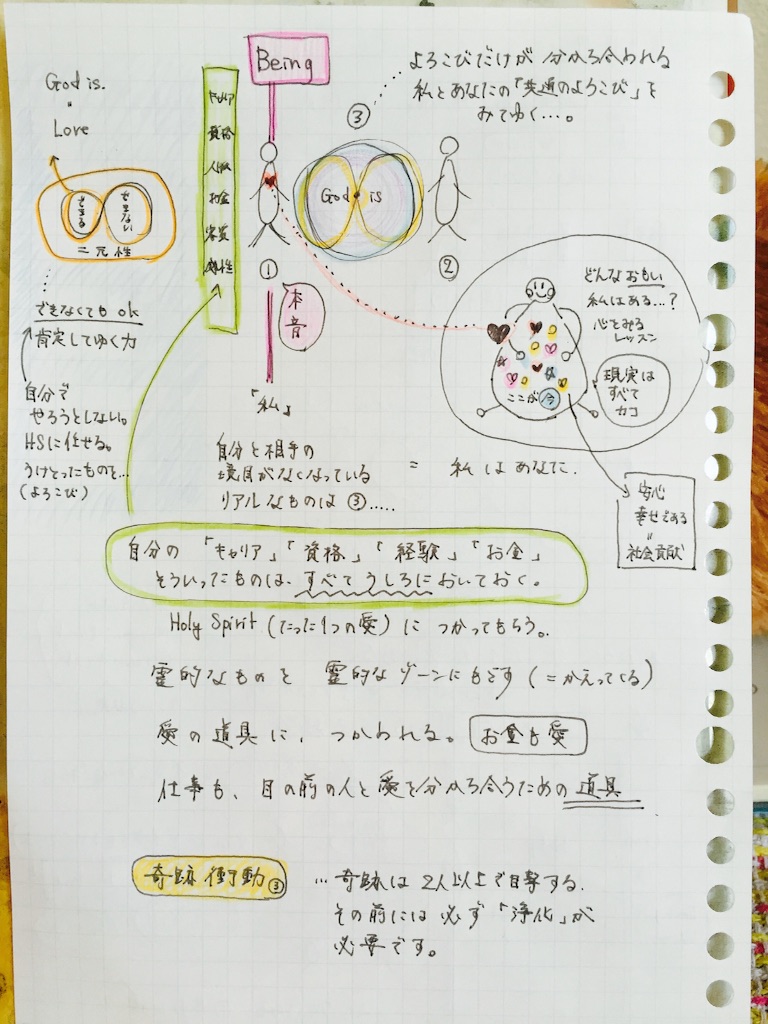 God is.
"
Love
できる
できない
二元性
できなくても ok
肯定してゆく力
自分で
やろうとしない。
HSに任せる。
うけとったものを…
(よろこび)
キャリア
資格
人脈
お金
容姿
Being
①
本音
「私」
③
God is
②
よろこびだけが 分かち合われる
私とあなたの「共通のよろこび」を
みてゆく…。
どんなおもい
私はある…?
心をみる
レッスン
現実は
すべて
カコ
ここが今
安心
幸せである
"
社会貢献
自分と相手の
境目がなくなっている
リアルなものは ③…..
= 私はあなた.
自分の 「キャリア」「資格」「経験」「お金」
そういったものは、すべてうしろにおいておく。
Holy Spirit (たった1つの愛) に つかってもらう。
霊的なものを 霊的なゾーンにもどす (=かえってくる)
愛の道具に、つかわれる。 お金も愛
仕事も、目の前の人と愛を分かち合うための道具
奇跡衝動③
…奇跡は 2人以上で目撃する.
その前には必ず「浄化」が
必要です。